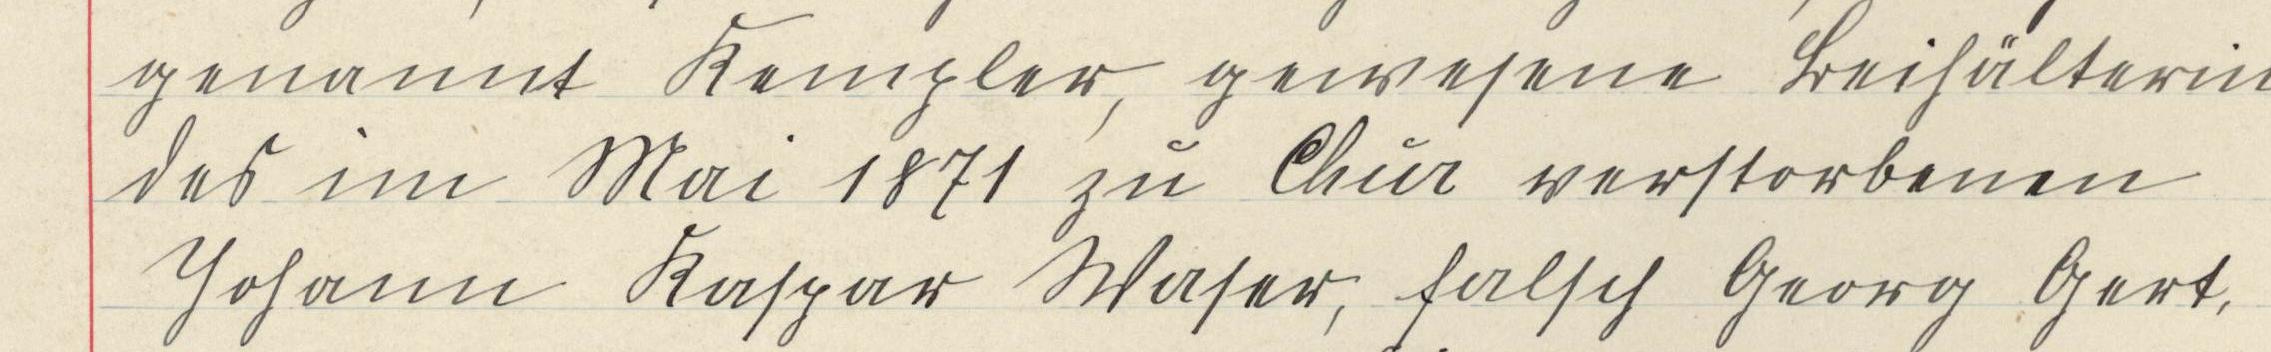 genannt Kempler, gewesene Beihälterin
des im Mai 1871 zu Chur verstorbenen
Johann Kaspar Waser, falsch Georg Gert,